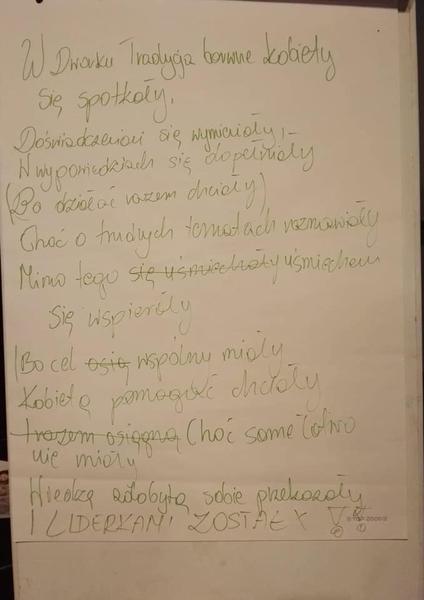 W Dworku Tradycja barwne kobiety
się spotkały,
Doświadczeniami się wymieniały,
W wypowiedziach się dopełniały
(Bo działać razem chciały)
Choć o trudnych tematach rozmawiały
Mimo tego się uśmiechały uśmiechem
się wspierały
(Bo cel osią wspólny miały
Kobietą pomagać chciały
I razem osiągną Choć same łatwo
nie miały
Wiedzę zdobytą sobie przekazały
I LIDERKAMI ZOSTAŁY